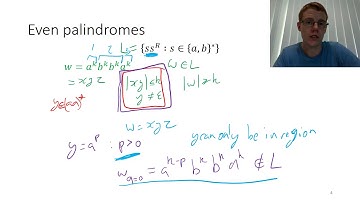 Even palindromes
1 2 L₀ = {ssᴿ : s ∈ {a, b}*}
w = aᵏbᵏbᵏaᵏ w ∈ L
= xyz |xy| ≤ k |w| ≥ k
y ≠ ε
w = xyz
y = aᵖ : p > 0 y can only be in region
w_q=0 = aᵏ⁻ᵖ bᵏ bᵏ aᵏ ∉ L
4